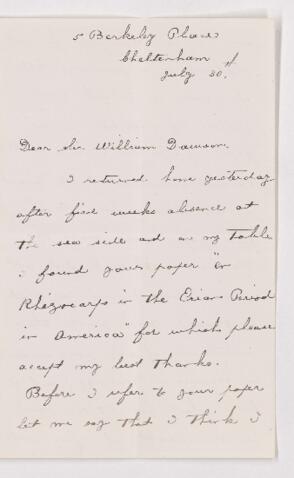 5 Berkeley Place
Cheltenham
July 30.
Dear Sir William Dawson.
I returned home yesterday
after five weeks absence at
the sea side and on my table
I found your paper "on
Rhizocarps in the Erian Period
in America" for which please
accept my best thanks.
Before I refer to your paper
let me say that I think I